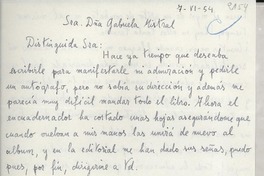 7-VI-54
9059
Sra. Dña Gabriela Mistral
Distinguida Sra:
Hace ya tiempo que deseaba
escribirle para manifestarle mi admiración y pedirle
un autógrafo, pero no sabía su dirección y además me
parecía muy difícil mandar todo el libro. Ahora el
encuadernador ha cortado unas hojas asegurandome que
cuando vuelvan a mis manos las unirá de nuevo al
album, y en la editorial me han dado sus señas, puedo
pues, por fín, dirigirme a Vd.